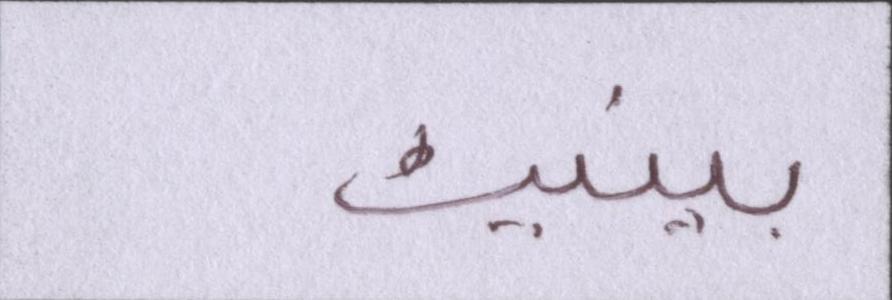 بینیٹ